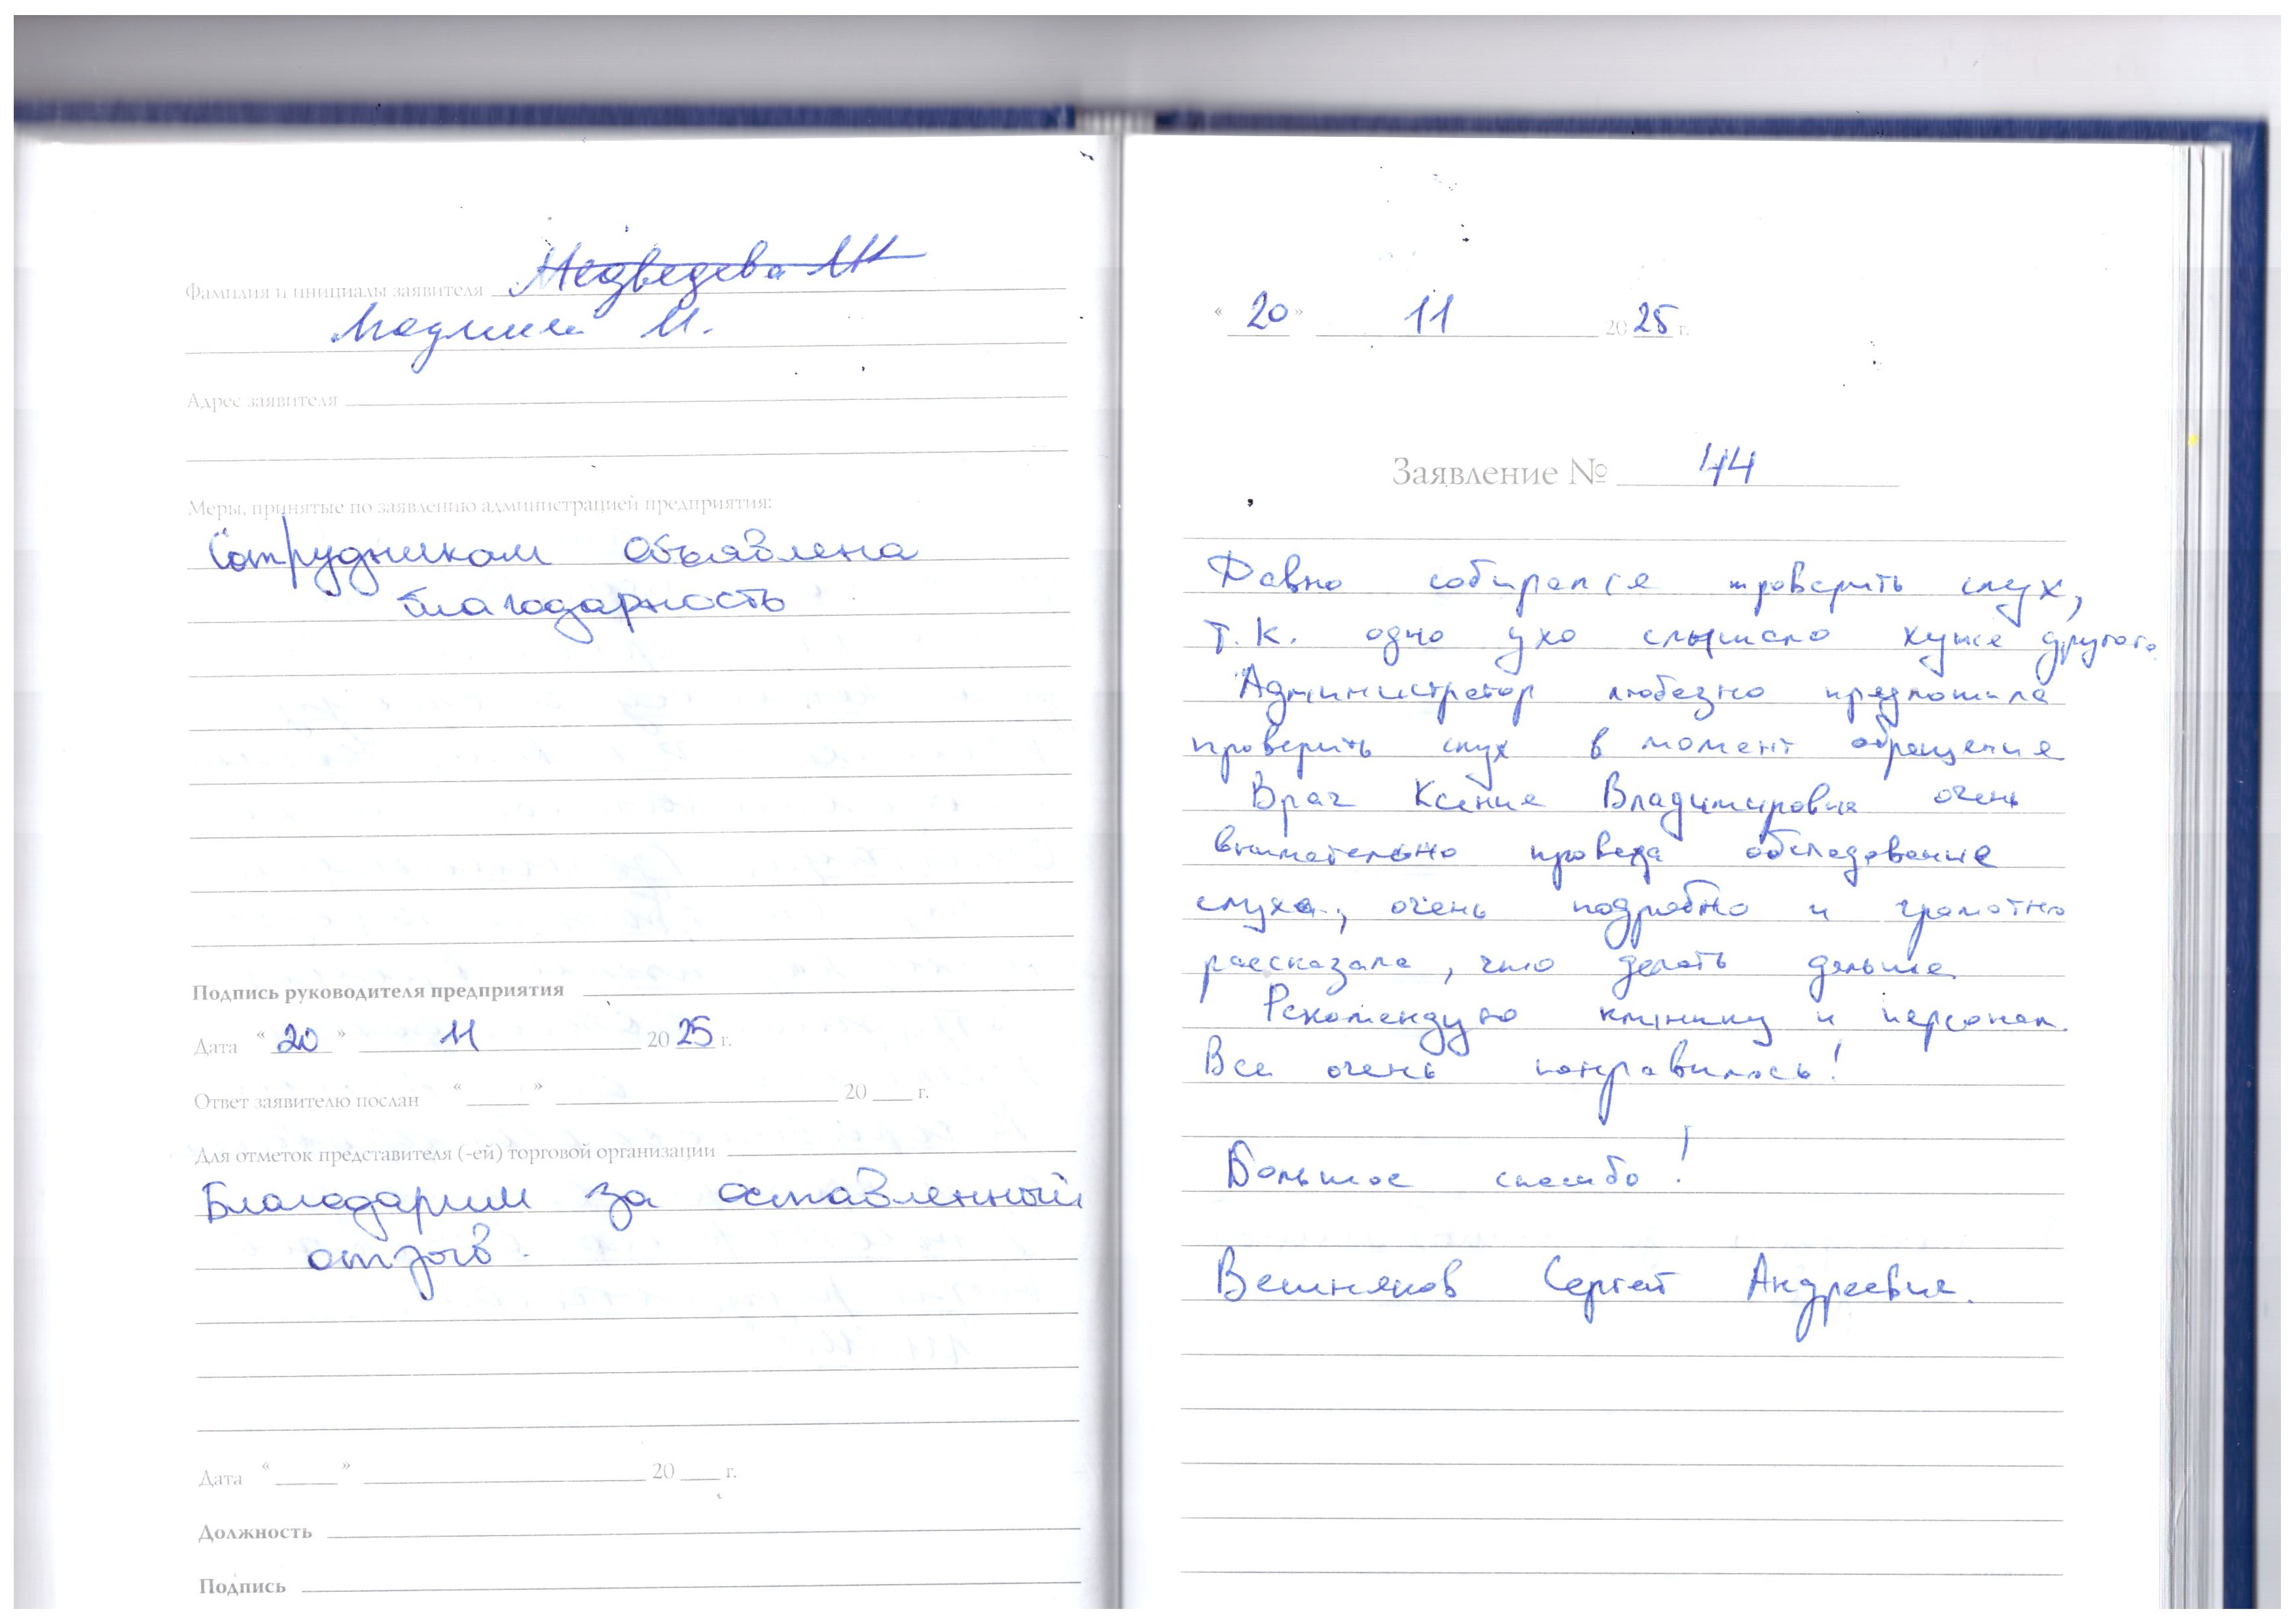 Фамилия и инициалы заявителя Медведева
М.
Адрес заявителя
Меры, принятые по заявлению администрацией предприятия:
Сотрудникам объявлена
благодарность
Подпись руководителя предприятия
Дата « 20 » 11 20 25 г.
Ответ заявителю послан « » 20 г.
Для отметок представителя (-ей) торговой организации
Благодарим за оставленный
отзыв.
Дата « » 20 г.
Должность
Подпись
« 20 » 11 20 25 г.
Заявление № 44
Давно собирался проверить слух,
т.к. одно ухо слышало хуже другого
Администратор любезно предложила
проверить слух в момент обращения
Врач Ксения Владимировна очень
внимательно провела обследование
слуха, очень подробно и грамотно
рассказала, что делать дальше
Рекомендую клинику и персонал.
Все очень понравилось!
Большое спасибо!
Вешняков Сергей Андреевич.